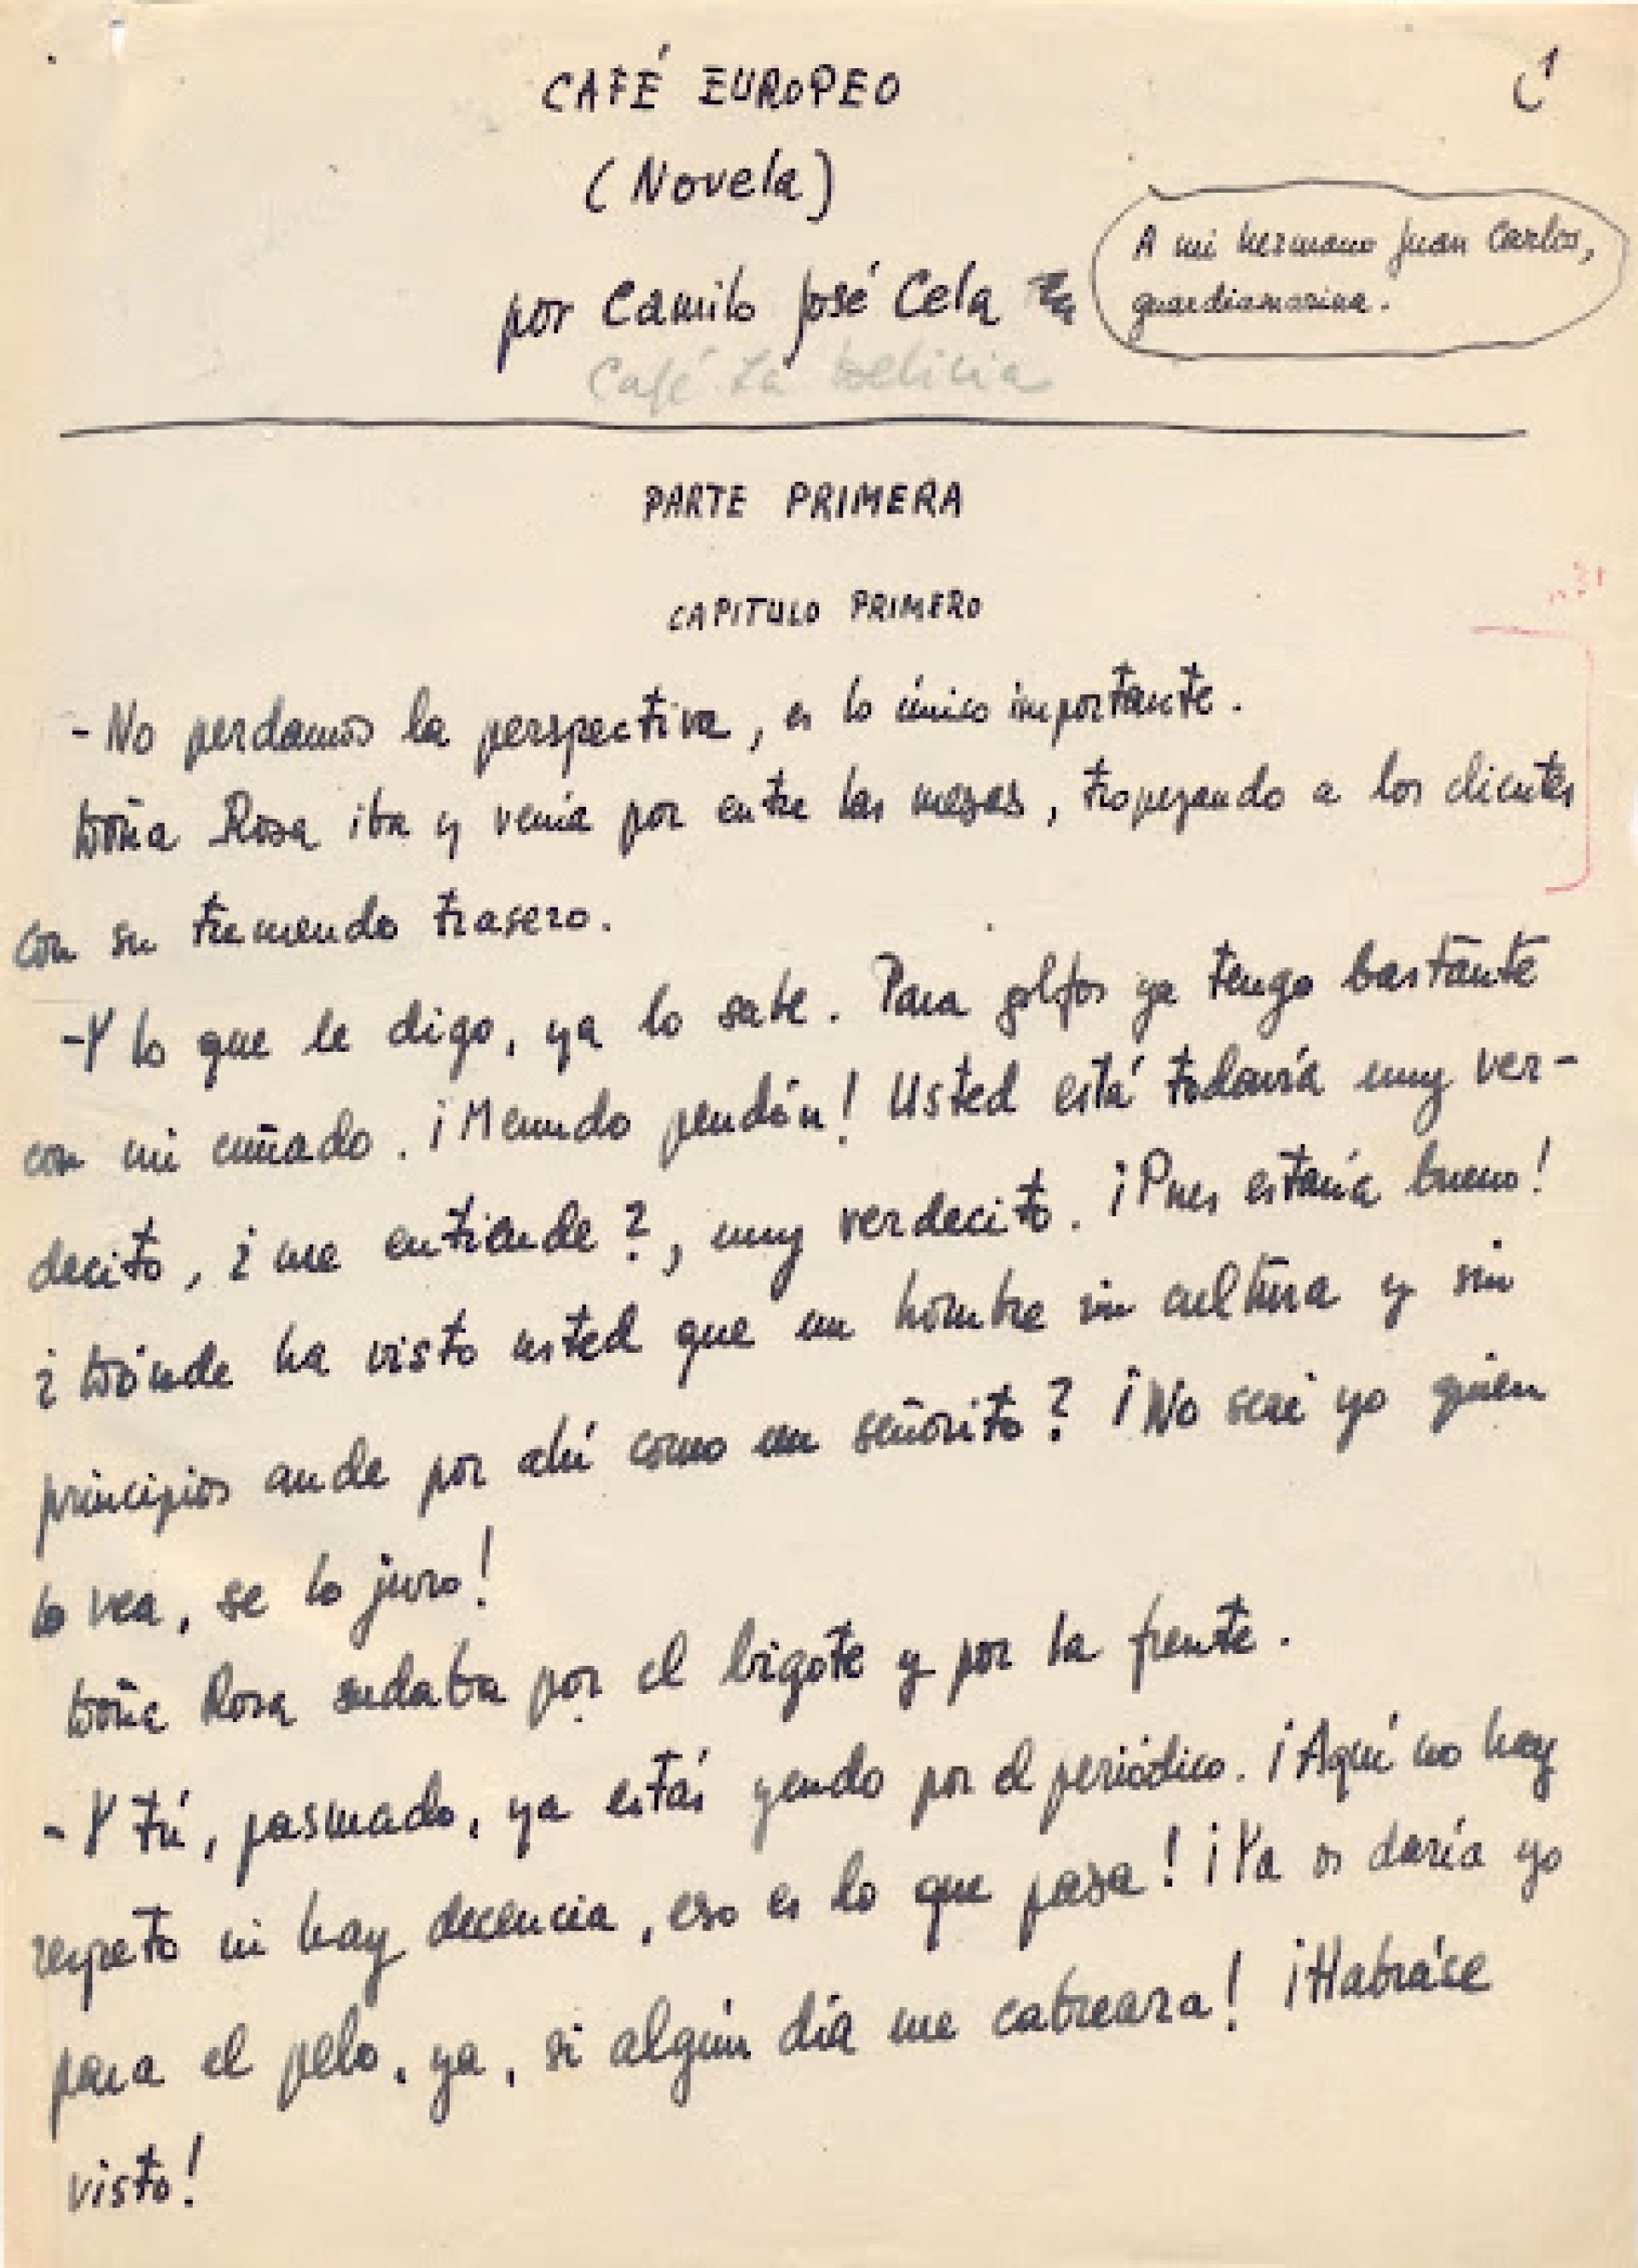 1
CAFÉ EUROPEO
(Novela)
A mi hermano Juan Carlos,
guardiamarina.
por Camilo José Cela
Café La Delicia
PARTE PRIMERA
CAPITULO PRIMERO
- No perdamos la perspectiva, es lo único importante.
Doña Rosa iba y venía por entre las mesas, tropezando a los clientes
con su tremendo trasero.
- Y lo que le digo, ya lo sabe. Para golfos ya tengo bastante
con mi cuñado. ¡Menudo pendón! Usted está todavía muy ver-
decito, ¿me entiende?, muy verdecito. ¡Pues estaría bueno!
¿Dónde ha visto usted que un hombre sin cultura y sin
principios ande por ahí como un señorito? ¡No seré yo quien
lo vea, se lo juro!
Doña Rosa sudaba por el bigote y por la frente.
- Y tú, pasmado, ya estás yendo por el periódico. ¡Aquí no hay
respeto ni hay decencia, eso es lo que pasa! ¡Ya os daría yo
para el pelo, ya, si algún día me cabreara! ¡Habráse
visto!